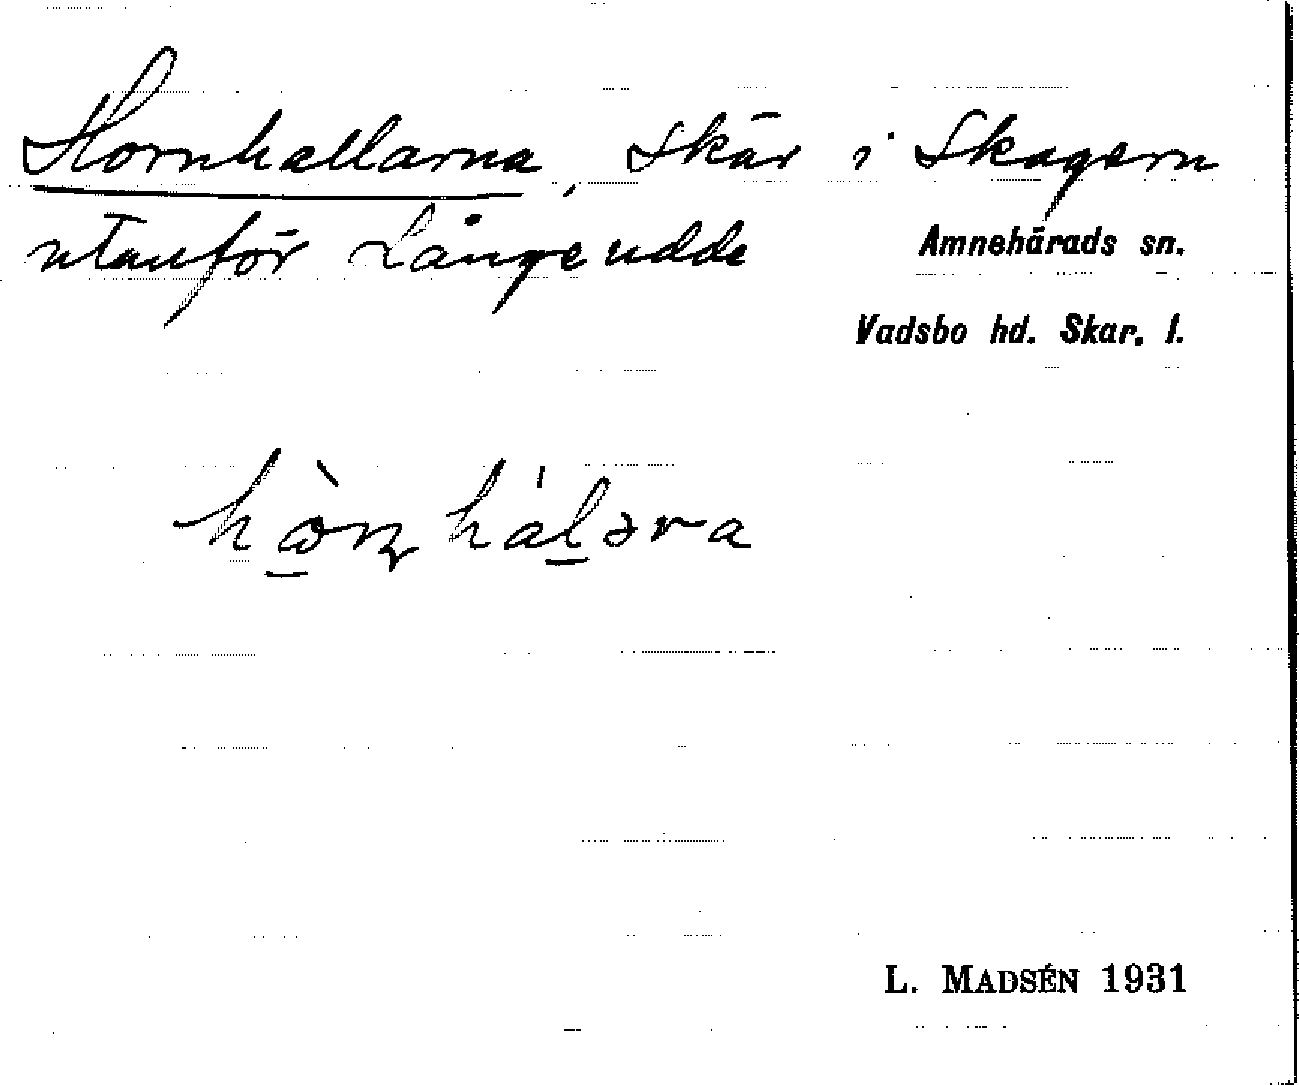 Hornhallarna, skär i Skagern
utanför Långeudde
Amnehärads sn.
Vadsbo hd. Skar. l.
L. MADSÉN 1931